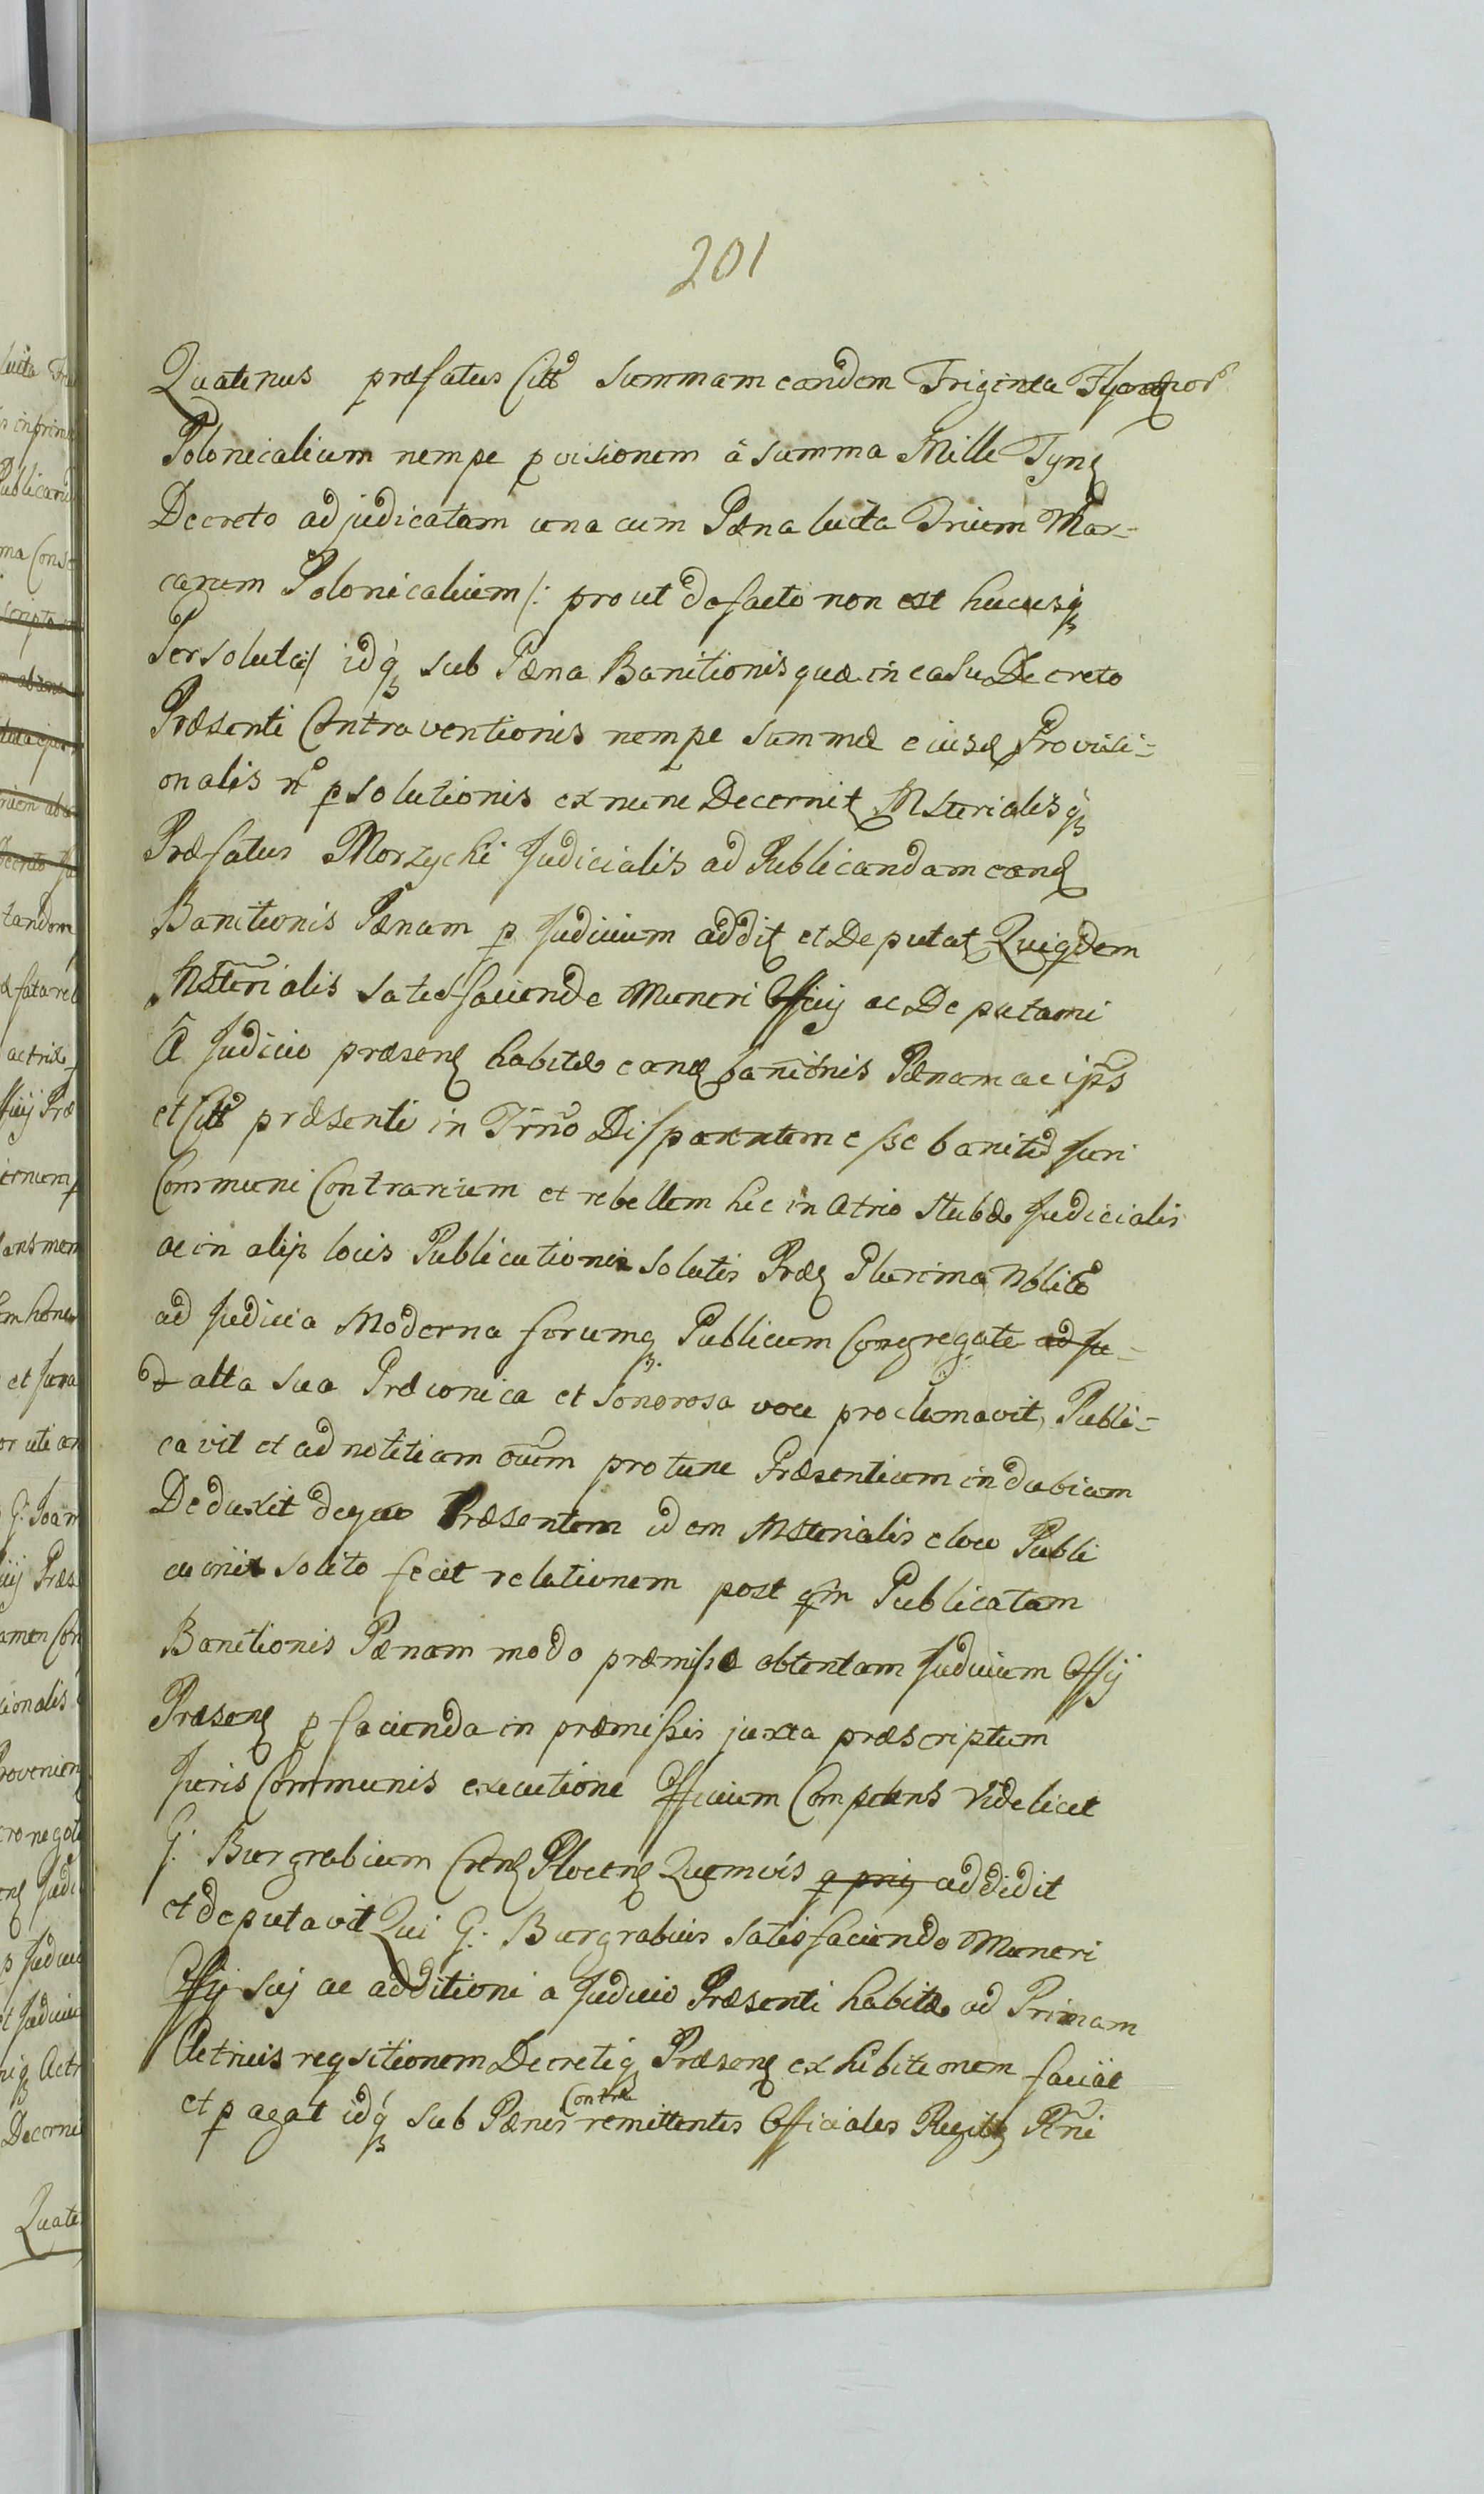 201
Quatenus præfatus Citt summam eandem Triginta Florenor
Polonicalium nempe pvisionem à summa Mille Tynf
Decreto adjudicatam una cum Pæna lucta Trium Mar-
carum Polonicalium /: prout defacto non est hucusq
Persoluta :/ idq sub Pæna Banitionis quæ in casu Decreto
Præsenti Contraventionis nempe summæ eiusd Provisi-
onalis no psolutionis ex nunc Decernit Msterialisq
Præfatus Morzycki Judicialis ad Publicandam eand
Banitionis Pænam p Judicium addit et Deputat Quiqdem
Msterialis satisfaciendo Muneri Officij ac Deputaoni
A Judicio præsen habitæ eand banitnis Pænam ac ips
et Citt præsenti in Trno Disparentem esse banitu Juri
Communi Contrarium et rebellem hic in Atrio Stubæ Judicialis
ac in alijs locis Publicationis solutis Præ Plurima Nblite
ad Judicia Moderna forumq Publicum Congregate ad Ju-
d alta sua Præconica et Sonorosa voce proclamavit, Publi-
cavit et ad notitiam oium protunc Præsentium indubiam
Deduxit dequo Præsentem idem Msterialis e loco Publi
caonis solito fecit relationem post qm Publicatam
Banitionis Pænam modo præmisso obtentam Judicium Offij
Præsen p facienda in præmissis juxta præscriptum
Juris Communis executione Officium Competens videlicet
G: Burgrabium Cren Plocen Quemvis q prig addidit
et deputavit Qui G: Burgrabius satisfaciendo Muneri
Offij sui ac additioni a Judicio Præsenti habitæ ad Primam
Actricis reqsitionem Decretiq Præsen exhibitionem faciat
et pagat idq sub Pænis Contra remittentes Officiales Regni